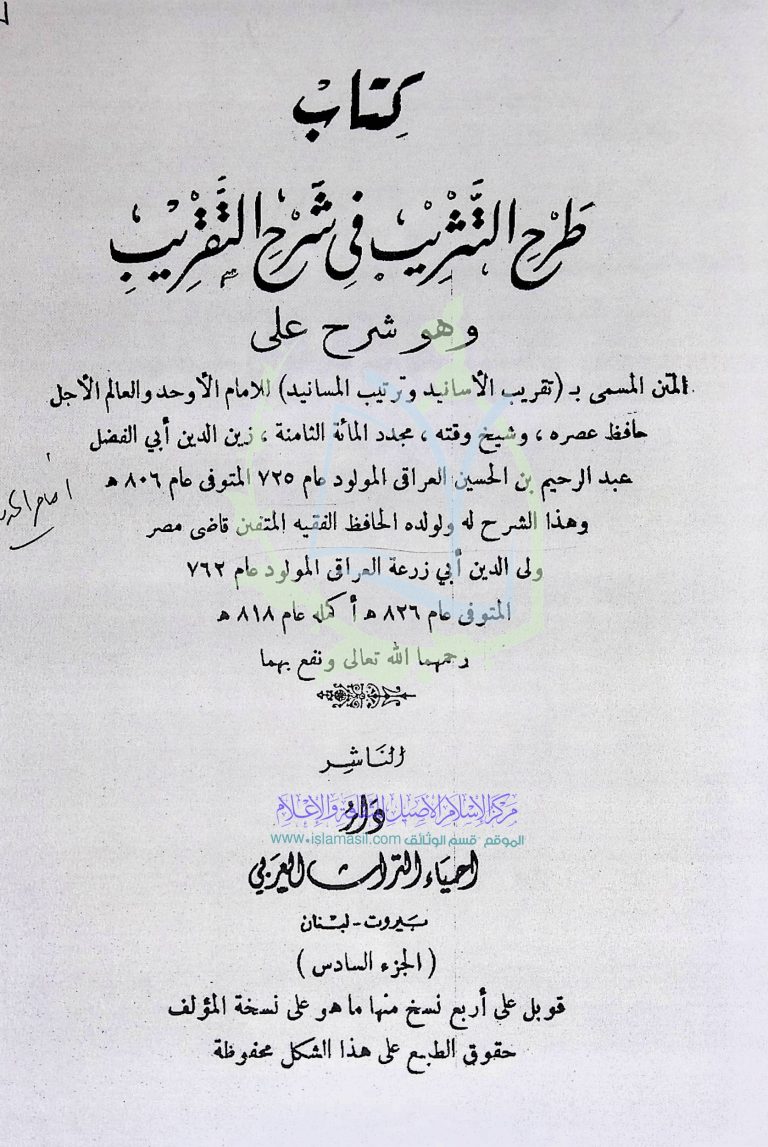 كِتاب
طَرْحِ التَّثْرِيبِ فِي شَرْحِ التَّقْرِيبِ
وهو شرح على
المتن المسمى بـ (تقريب الأسانيد وترتيب المسانيد) للامام الأوحد والعالم الأجل
حافظ عصره، وشيخ وقته، مجدد المائة الثامنة، زين الدين أبي الفضل
عبد الرحيم بن الحسين العراقى المولود عام ٧٢٥ المتوفى عام ٨٠٦ هـ
وهذا الشرح له ولولده الحافظ الفقيه المتفنن قاضى مصر
ولى الدين أبي زرعة العراقى المولود عام ٧٦٢
المتوفى عام ٨٢٦ هـ أكمله عام ٨١٨ هـ
رحمهما الله تعالى ونفع بهما
النَاشِر
مركز الإسلام الأصيل للثقافة والإعلام
دَار
الموقع - قسم الوثائق www.islamasil.com
احياء التراث العربي
بيروت - لبنان
(الجزء السادس)
قوبل على أربع نسخ منها ما هو على نسخة المؤلف
حقوق الطبع على هذا الشكل محفوظة